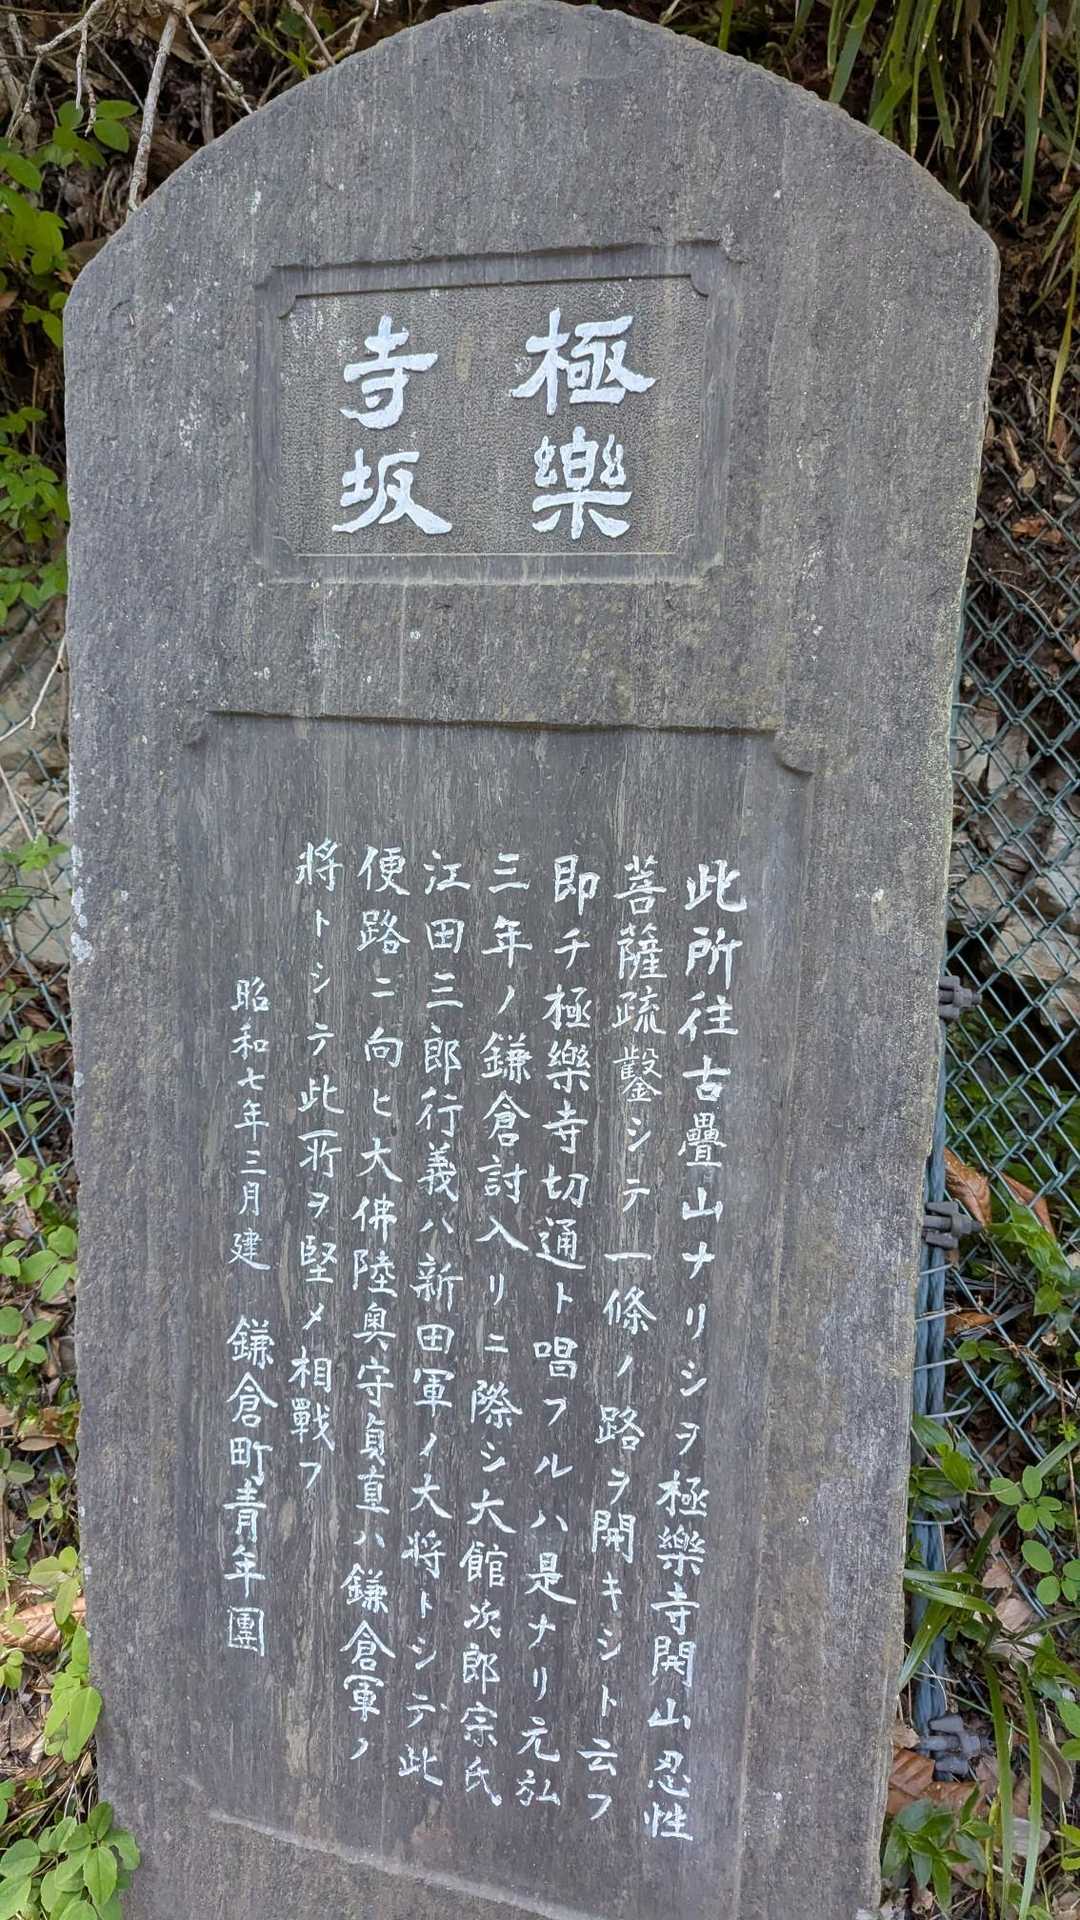 極樂
寺坂
此所往古疊山ナリシヲ極樂寺開山忍性
菩薩疏鑿シテ一條ノ路ヲ開キシト云フ
即チ極樂寺切通ト唱フルハ是ナリ元弘
三年ノ鎌倉討入リニ際シ大館次郎宗氏
江田三郎行義ハ新田軍ノ大将トシテ此
便路ニ向ヒ大佛陸奥守貞直ハ鎌倉軍ノ
将トシテ此所ヲ堅メ相戰フ
昭和七年三月建 鎌倉町青年團